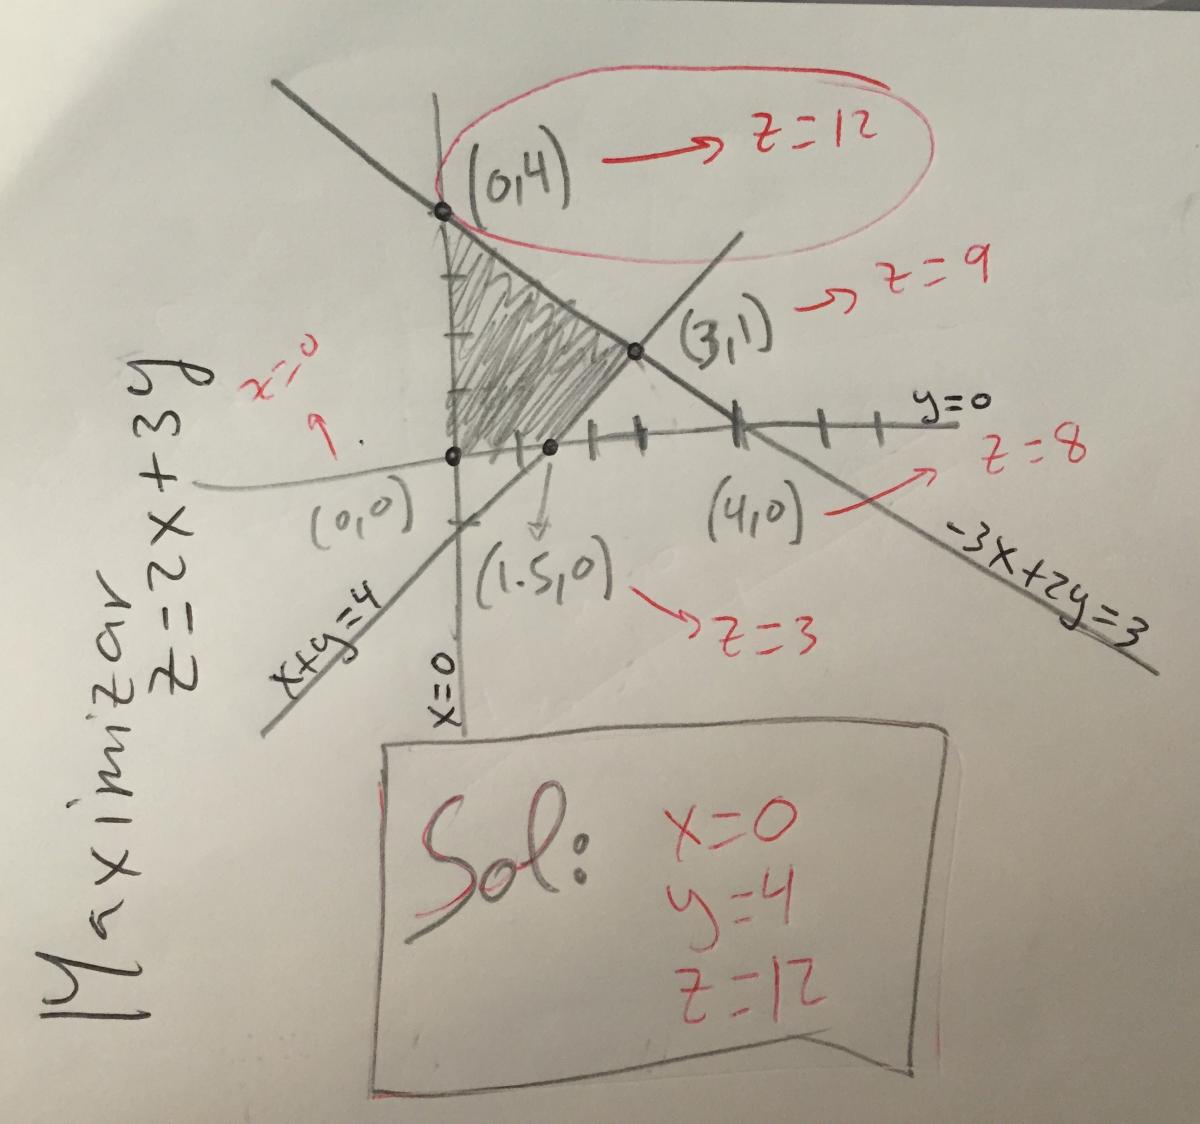 Maximizar
z=2x+3y
(0,4) → z=12
(3,1) → z=9
x=0
y=0
(0,0)
(4,0) → z=8
(1.5,0) → z=3
x+y=4
x=0
-3x+2y=3
Sol: x=0
y=4
z=12